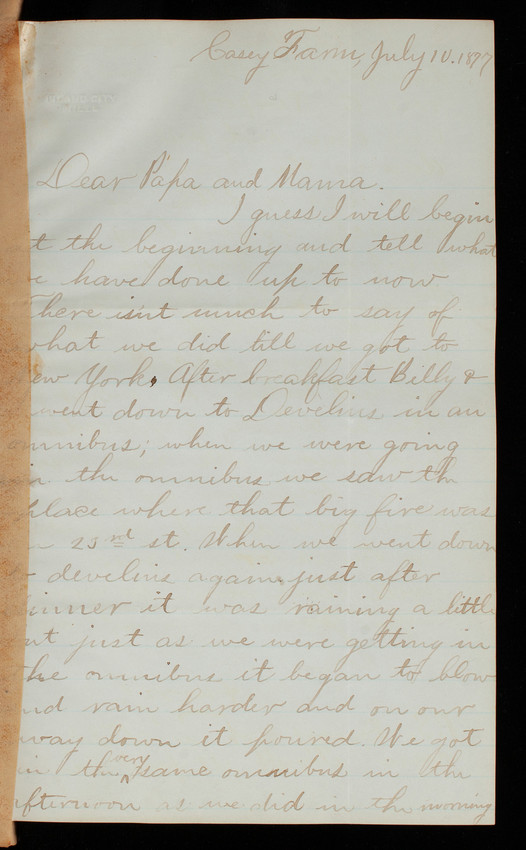 Casey Farm, July 10. 1877
Dear Papa and Mama.
I guess I will begin
t the beginning and tell what
e have done up to now
There isn't much to say of
what we did till we got to
ew York. After breakfast Billy &
went down to Develins in an
omnibus; when we were going
in the omnibus we saw th
place where that big fire was
n 23rd st. When we went down
develins again just after
inner it was raining a little
ut just as we were getting in
the omnibus it began to blow
nd rain harder and on our
way down it poured. We got
in the very same omnibus in the
afternoon as we did in the morning